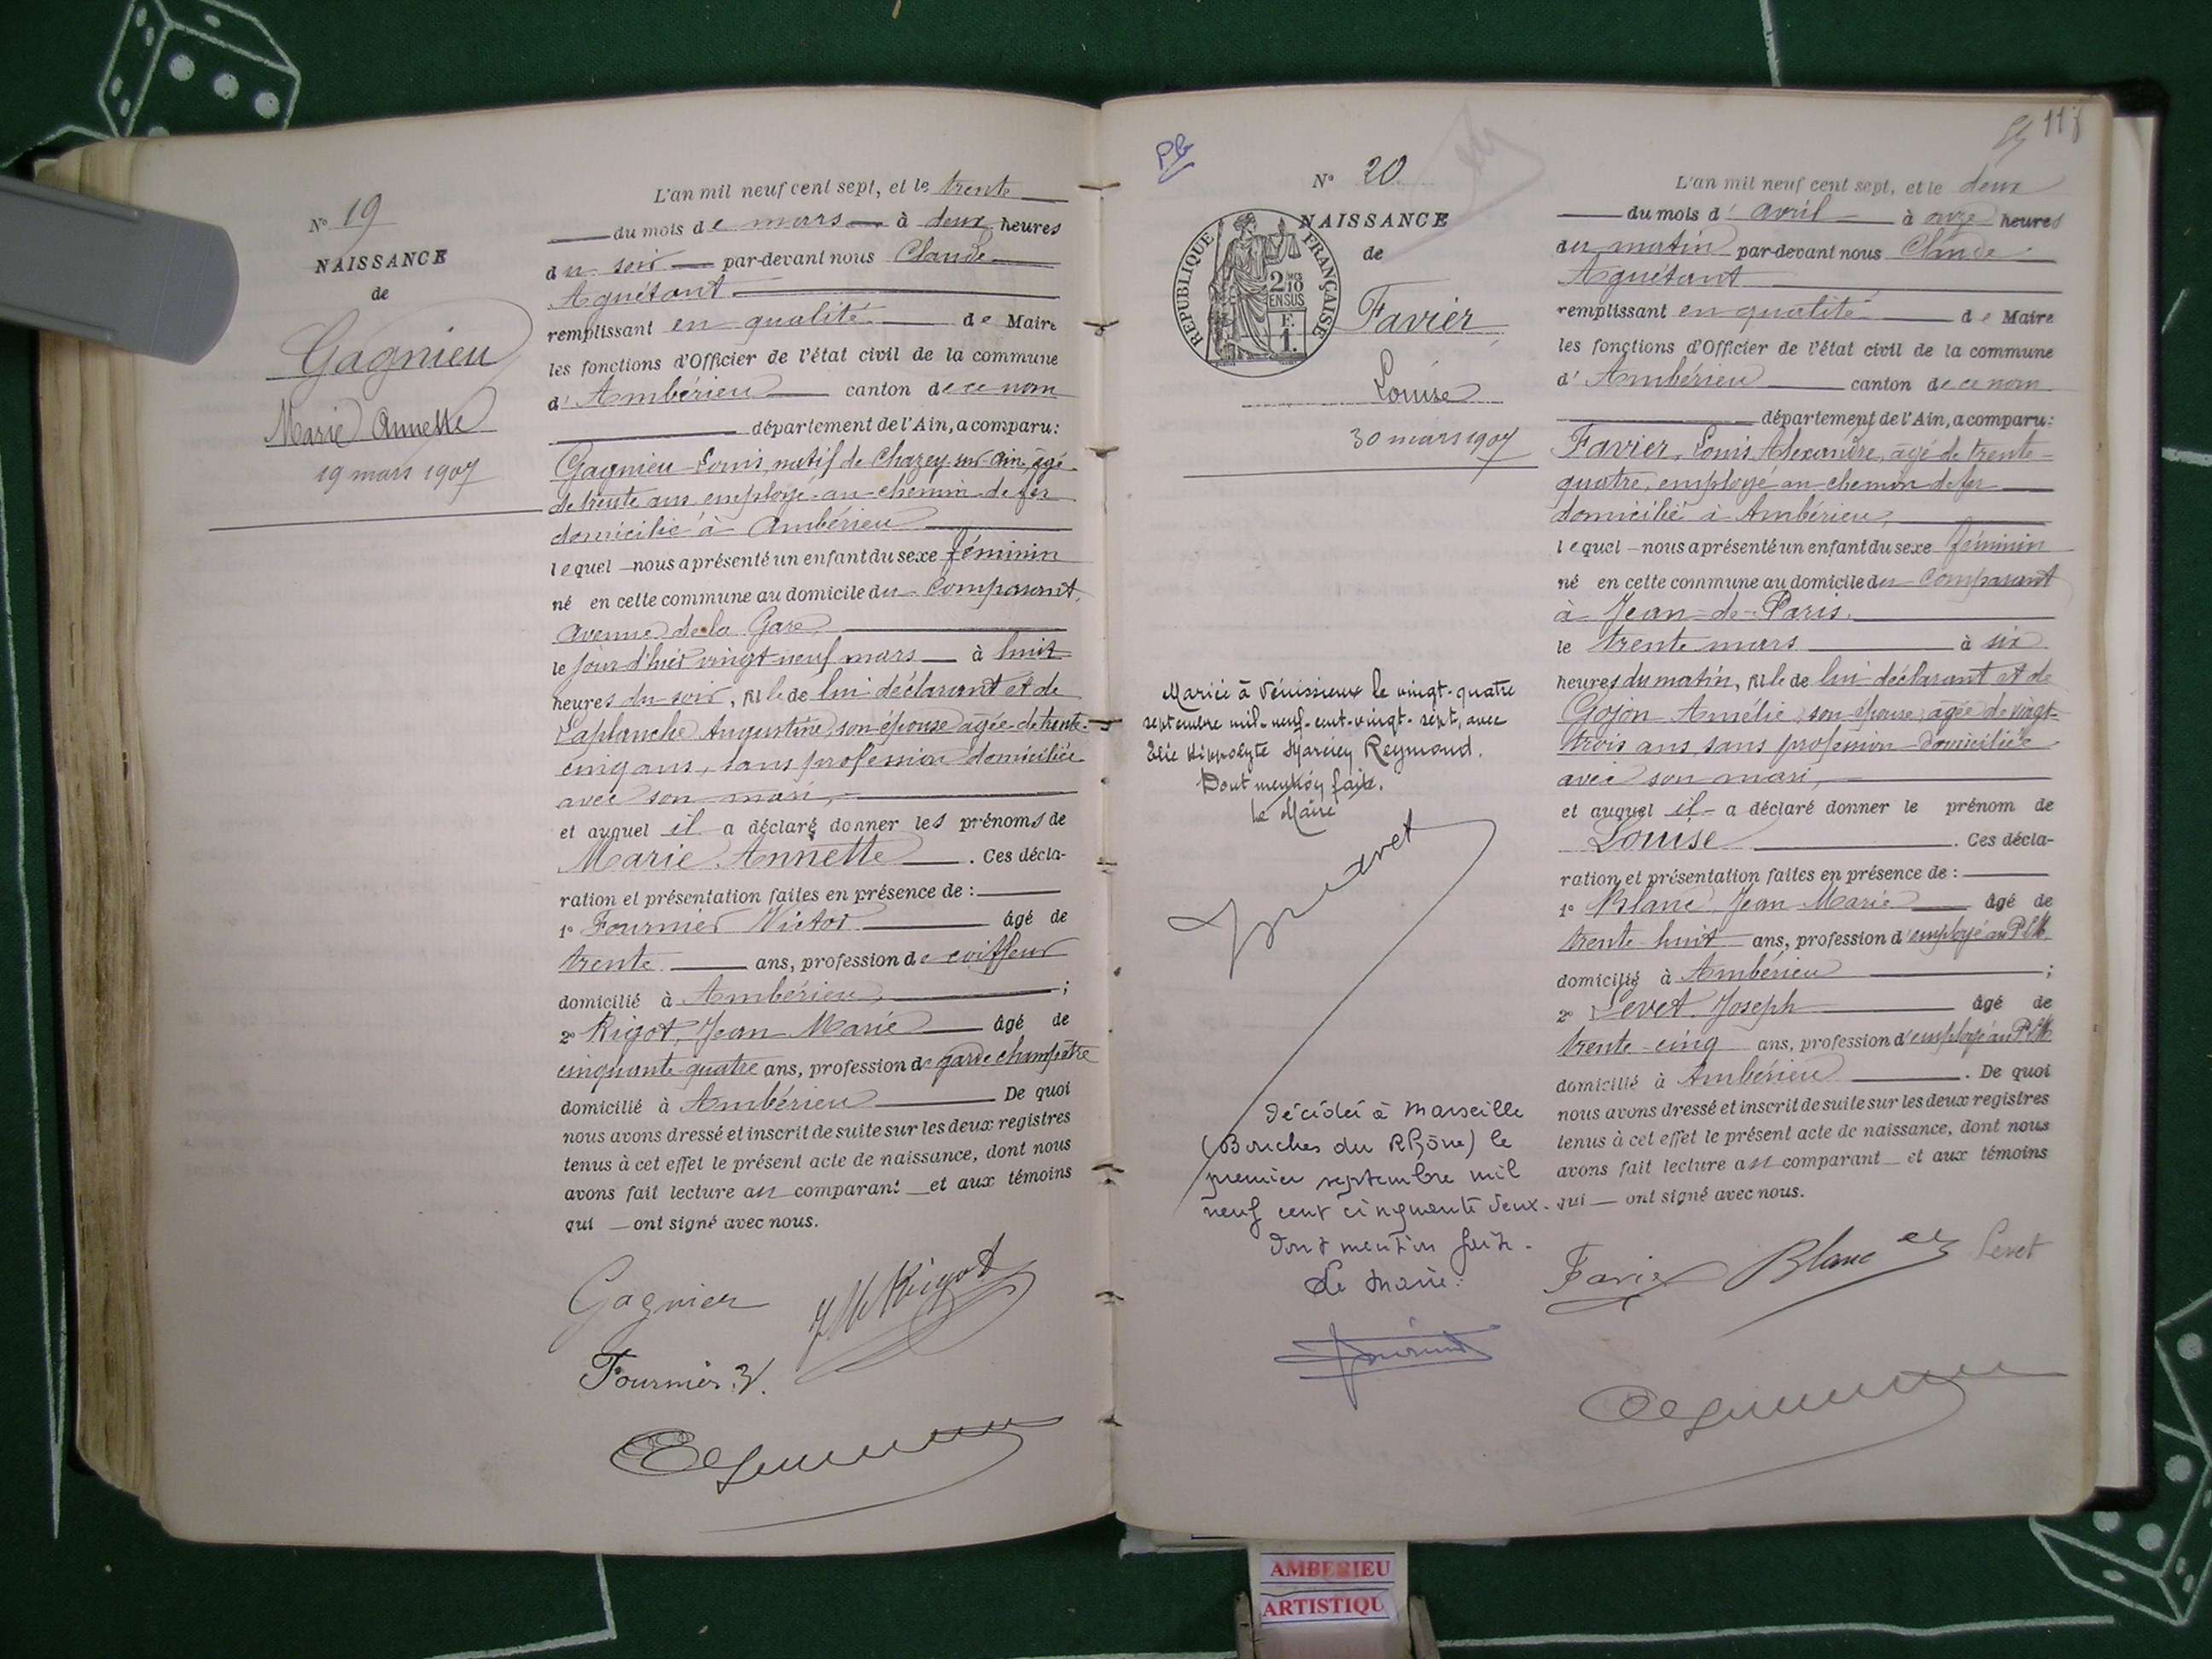 N° 19
NAISSANCE
de
Gagnieu
Marie Annette
19 mars 1907
L'an mil neuf cent sept, et le trente
du mois de mars à deux heures
du soir par-devant nous Claude
Aguétant
remplissant en qualité de Maire
les fonctions d'Officier de l'état civil de la commune
d'Ambérieu canton de ce nom
département de l'Ain, a comparu:
Gagnieu Louis, natif de Chazey-sur-Ain, âgé
de trente ans, employé au chemin de fer
domicilié à Ambérieu
lequel nous a présenté un enfant du sexe féminin
né en cette commune au domicile du Comparant,
Avenue de la Gare,
le jour d'hier vingt neuf mars à huit
heures du soir, fille de lui déclarant et de
Laplanche Augustine, son épouse âgée de trente-
cinq ans, sans profession domiciliée
avec son mari,
et auquel il a déclaré donner les prénoms de
Marie Annette. Ces décla-
ration et présentation faites en présence de :
1° Fournier Victor âgé de
trente ans, profession de coiffeur
domicilié à Ambérieu, ;
2° Rigot, Jean Marie âgé de
cinquante quatre ans, profession de garde champêtre
domicilié à Ambérieu De quoi
nous avons dressé et inscrit de suite sur les deux registres
tenus à cet effet le présent acte de naissance, dont nous
avons fait lecture au comparant et aux témoins
qui ont signé avec nous.
Gagnieu JM Rigot
Fournier V.
N° 20
NAISSANCE
de
REPUBLIQUE FRANÇAISE
2/10
EN SUS
F.
1.
Favier
Louise
30 mars 1907
Mariée à Vénissieux le vingt-quatre
septembre mil-neuf-cent-vingt-sept, avec
Elie Hippolyte Reymond.
Dont mention faite.
Le Maire
Décédée à Marseille
(Bouches du Rhône) le
premier septembre mil
neuf cent cinquante deux.
Dont mention faite.
Le Maire:
L'an mil neuf cent sept, et le deux
du mois d'avril à onze heures
du matin par-devant nous Claude
Aguétant
remplissant en qualité de Maire
les fonctions d'Officier de l'état civil de la commune
d'Ambérieu canton de ce nom
département de l'Ain, a comparu:
Favier, Louis Alexandre, âgé de trente-
quatre, employé au chemin de fer
domicilié à Ambérieu,
lequel nous a présenté un enfant du sexe féminin
né en cette commune au domicile du Comparant
à Jean-de-Paris,
le trente mars à six
heures du matin, fille de lui déclarant et de
Gojon Amélie, son épouse, âgée de vingt-
trois ans, sans profession domiciliée
avec son mari,
et auquel il a déclaré donner le prénom de
Louise. Ces décla-
ration et présentation faites en présence de :
1° Blanc Jean Marie âgé de
trente-huit ans, profession d'employé au PLM
domicilié à Ambérieu ;
2° Levet Joseph âgé de
trente-cinq ans, profession d'employé au PLM
domicilié à Ambérieu. De quoi
nous avons dressé et inscrit de suite sur les deux registres
tenus à cet effet le présent acte de naissance, dont nous
avons fait lecture au comparant et aux témoins
qui ont signé avec nous.
Favier Blanc Levet
AMBERIEU
ARTISTIQU